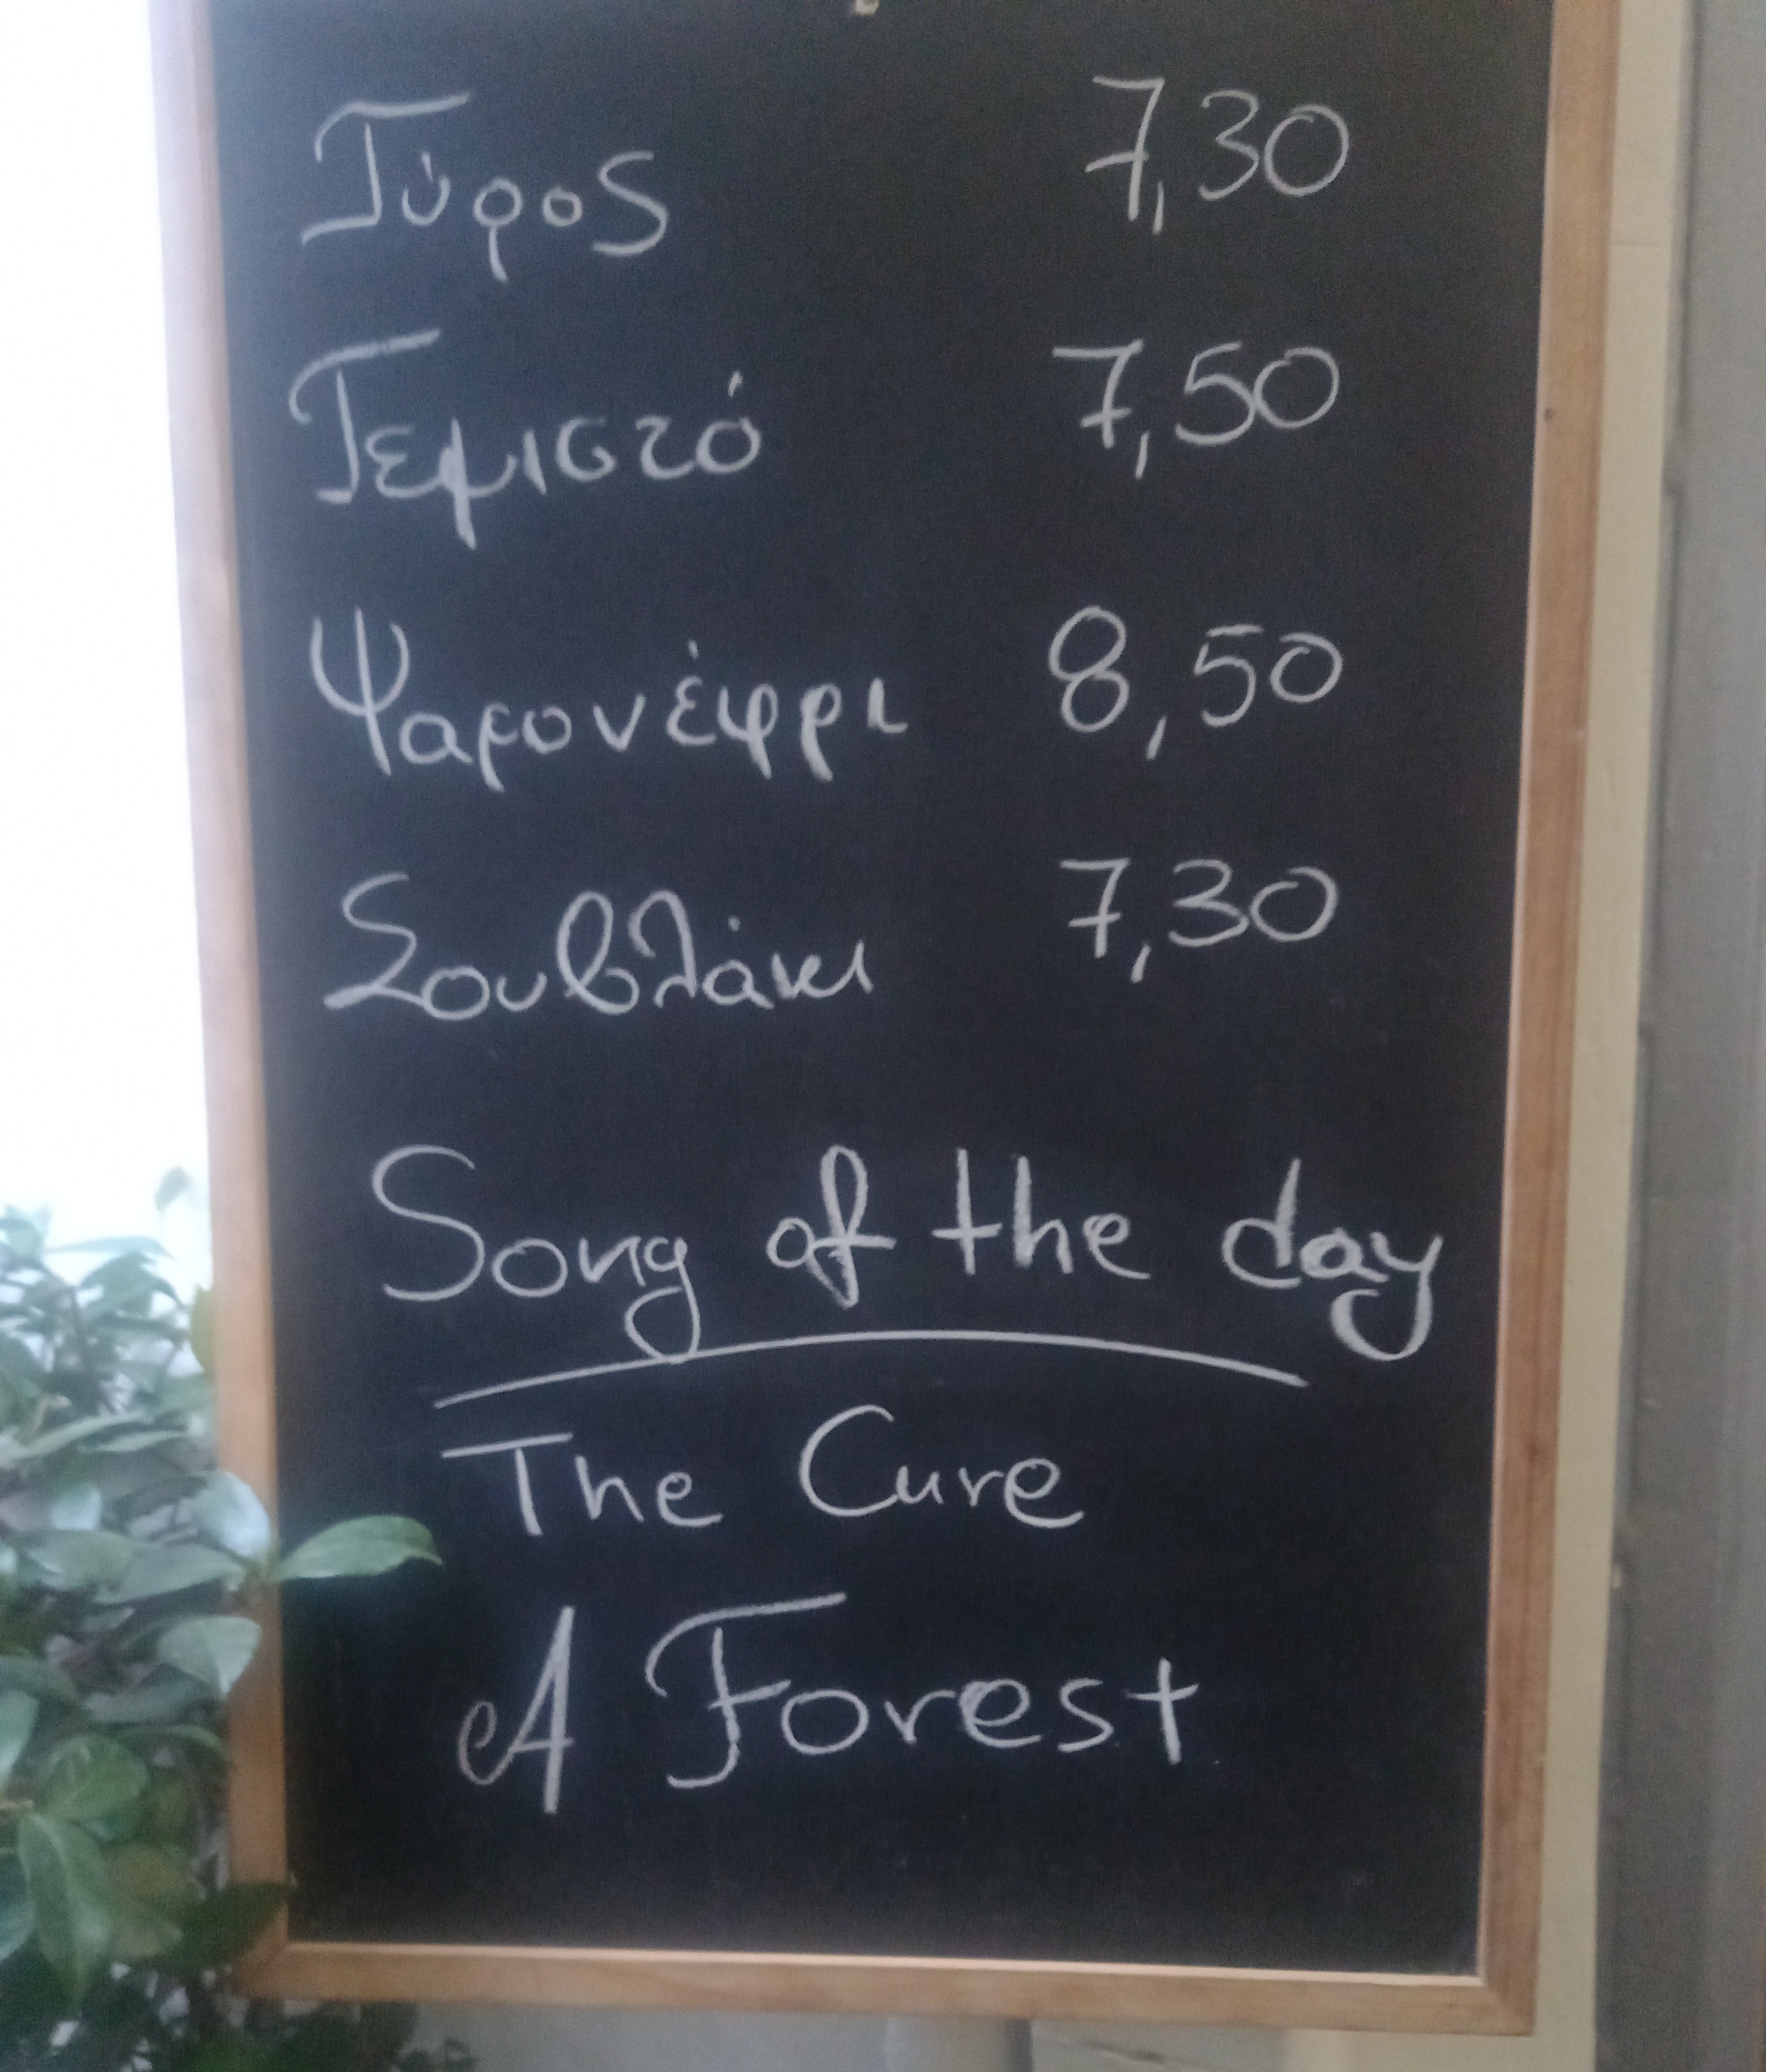 Γύρος 7,30
Γεμιστό 7,50
Ψαρονέφρι 8,50
Σουβλάκι 7,30
Song of the day
The Cure
A Forest